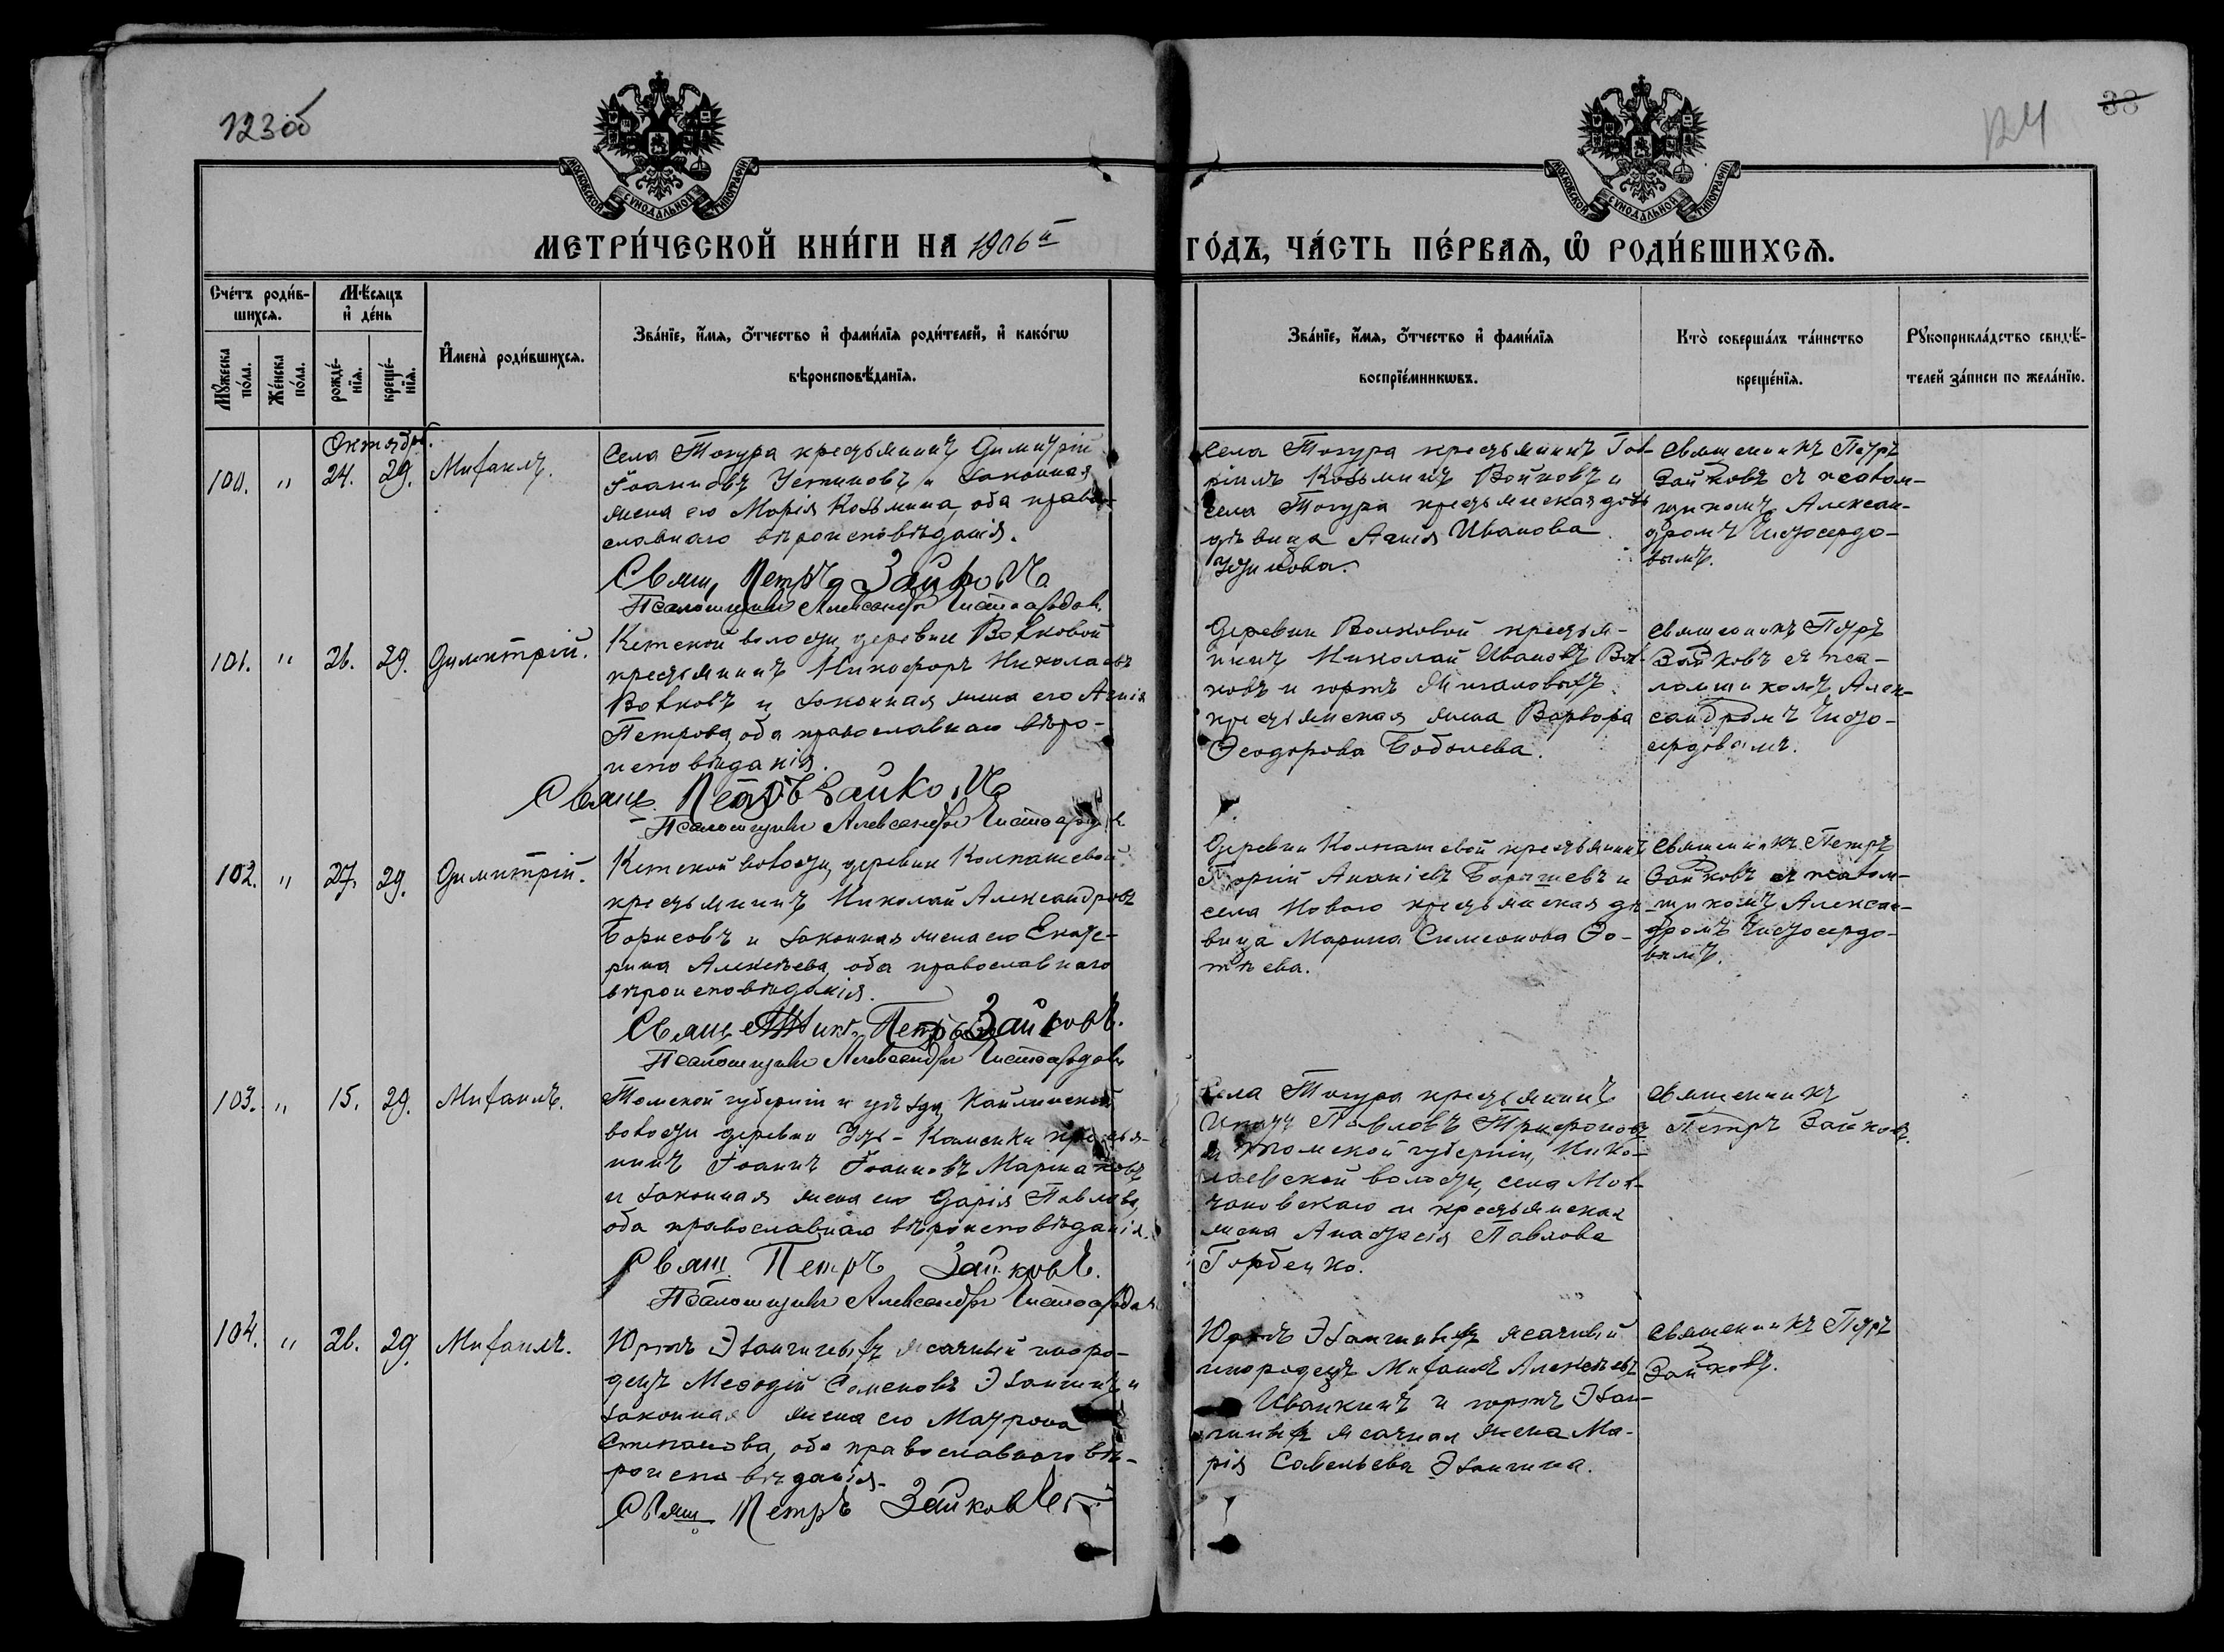 123об
38
МОСКОВСКОЙ СУНОДАЛЬНОЙ ТИПОГРАФІИ
МОСКОВСКОЙ СУНОДАЛЬНОЙ ТИПОГРАФІИ
МЕТРИ́ЧЕСКОЙ КНИ́ГИ НА 1906й
ГО́ДЪ, ЧА́СТЬ ПЕ́РВАѦ, Ѡ҆ РОДИ́ВШИХСѦ.
Сче́тъ роди́в-
шихсѧ.
Мѣ́сѧцъ
и҆ де́нь
Мꙋ́жеска
по́ла.
Же́нска
по́ла.
рожде́-
нїѧ.
креще́-
нїѧ.
И҆мена̀ роди́вшихсѧ.
Зва́нїе, и҆́мѧ, ѻ҆́тчество и҆ фами́лїѧ роди́телей, и҆ како́гѡ
вѣроисповѣ́данїѧ.
Зва́нїе, и҆́мѧ, ѻ҆́тчество и҆ фами́лїѧ
воспрїе́мникѡвъ.
Кто̀ соверша́лъ та́инство
креще́нїѧ.
Рꙋкоприкла́дство свидѣ́-
телей за́писи по жела́нїю.
Октябрь.
100.
"
24.
29.
Михаилъ.
Села Тогура крестьянинъ Димитрій
Іоанновъ Устиновъ и законная
жена его Марія Козьмина, оба право-
славнаго вѣроисповѣданія.
Свящ. Петръ Зайковъ
Псаломщикъ Александръ Чистосердов.
Села Тогура крестьянинъ Гав-
ріилъ Козьминъ Войновъ и
села Тогура крестьянская дочь
дѣвица Агнія Иванова
Священникъ Петръ
Зайковъ съ псалом-
щикомъ Алексан-
дромъ Чистосердо-
вымъ.
101.
"
26.
29.
Димитрій.
Кетской волости, деревни Волковой
крестьянинъ Никифоръ Николаевъ
Волковъ и законная жена его Агнія
Петрова, оба православнаго вѣро-
исповѣданія.
Свящ. Петръ Зайковъ
Псаломщикъ Александръ Чистосердов
Деревни Волковой крестья-
нинъ Николай Ивановъ Вол-
ковъ и юртъ
крестьянская жена Варвара
Ѳеодорова Боболева.
Священникъ Петръ
Зайковъ съ пса-
ломщикомъ Алек-
сандромъ Чисто-
сердовымъ.
102.
"
27.
29.
Димитрій.
Кетской волости, деревни Колпашевой
крестьянинъ Николай Александровъ
Борисовъ и законная жена его Екате-
рина Алексѣева, оба православнаго
вѣроисповѣданія.
Священникъ Петръ Зайковъ.
Псаломщикъ Александръ Чистосердовъ
Деревни Колпашевой крестьянинъ
Ананіевъ Барышевъ и
села Новаго крестьянская дѣ-
вица Марина Симеонова Фо-
тѣева.
Священникъ Петръ
Зайковъ съ псалом-
щикомъ Алексан-
дромъ Чистосердо-
вымъ.
103.
"
15.
29.
Михаилъ.
Томской губерніи и уѣзда, Кайлинской
волости деревни Усть-Каменки крестья-
нинъ Іоаннъ Іоанновъ
и законная жена его Дарія Павлова,
оба православнаго вѣроисповѣданія.
Свящ. Петръ Зайковъ.
Псаломщикъ Александръ Чистосердов
Села Тогура крестьянинъ
Павловъ Трифоновъ
и томской губерніи, Нико-
лаевской волости, села Мол-
чановскаго и крестьянская
жена Анастасія Павлова
Горбенко.
Священникъ
Петръ Зайковъ.
104.
"
26.
29
Михаилъ.
Юртъ Эзангиныхъ ясачный иноро-
децъ Меѳодій Семеновъ Эзангинъ и
законная жена его Матрона
Степанова, оба православнаго вѣ-
роисповѣданія.
Свящ Петръ Зайковъ
Юртъ Эзангиныхъ ясачный
инородецъ Михаилъ Алексѣевъ
Иванкинъ и юртъ Эзан-
гиныхъ ясачная жена Ма-
рія Савельева Эзангина.
Священникъ Петръ
Зайковъ.